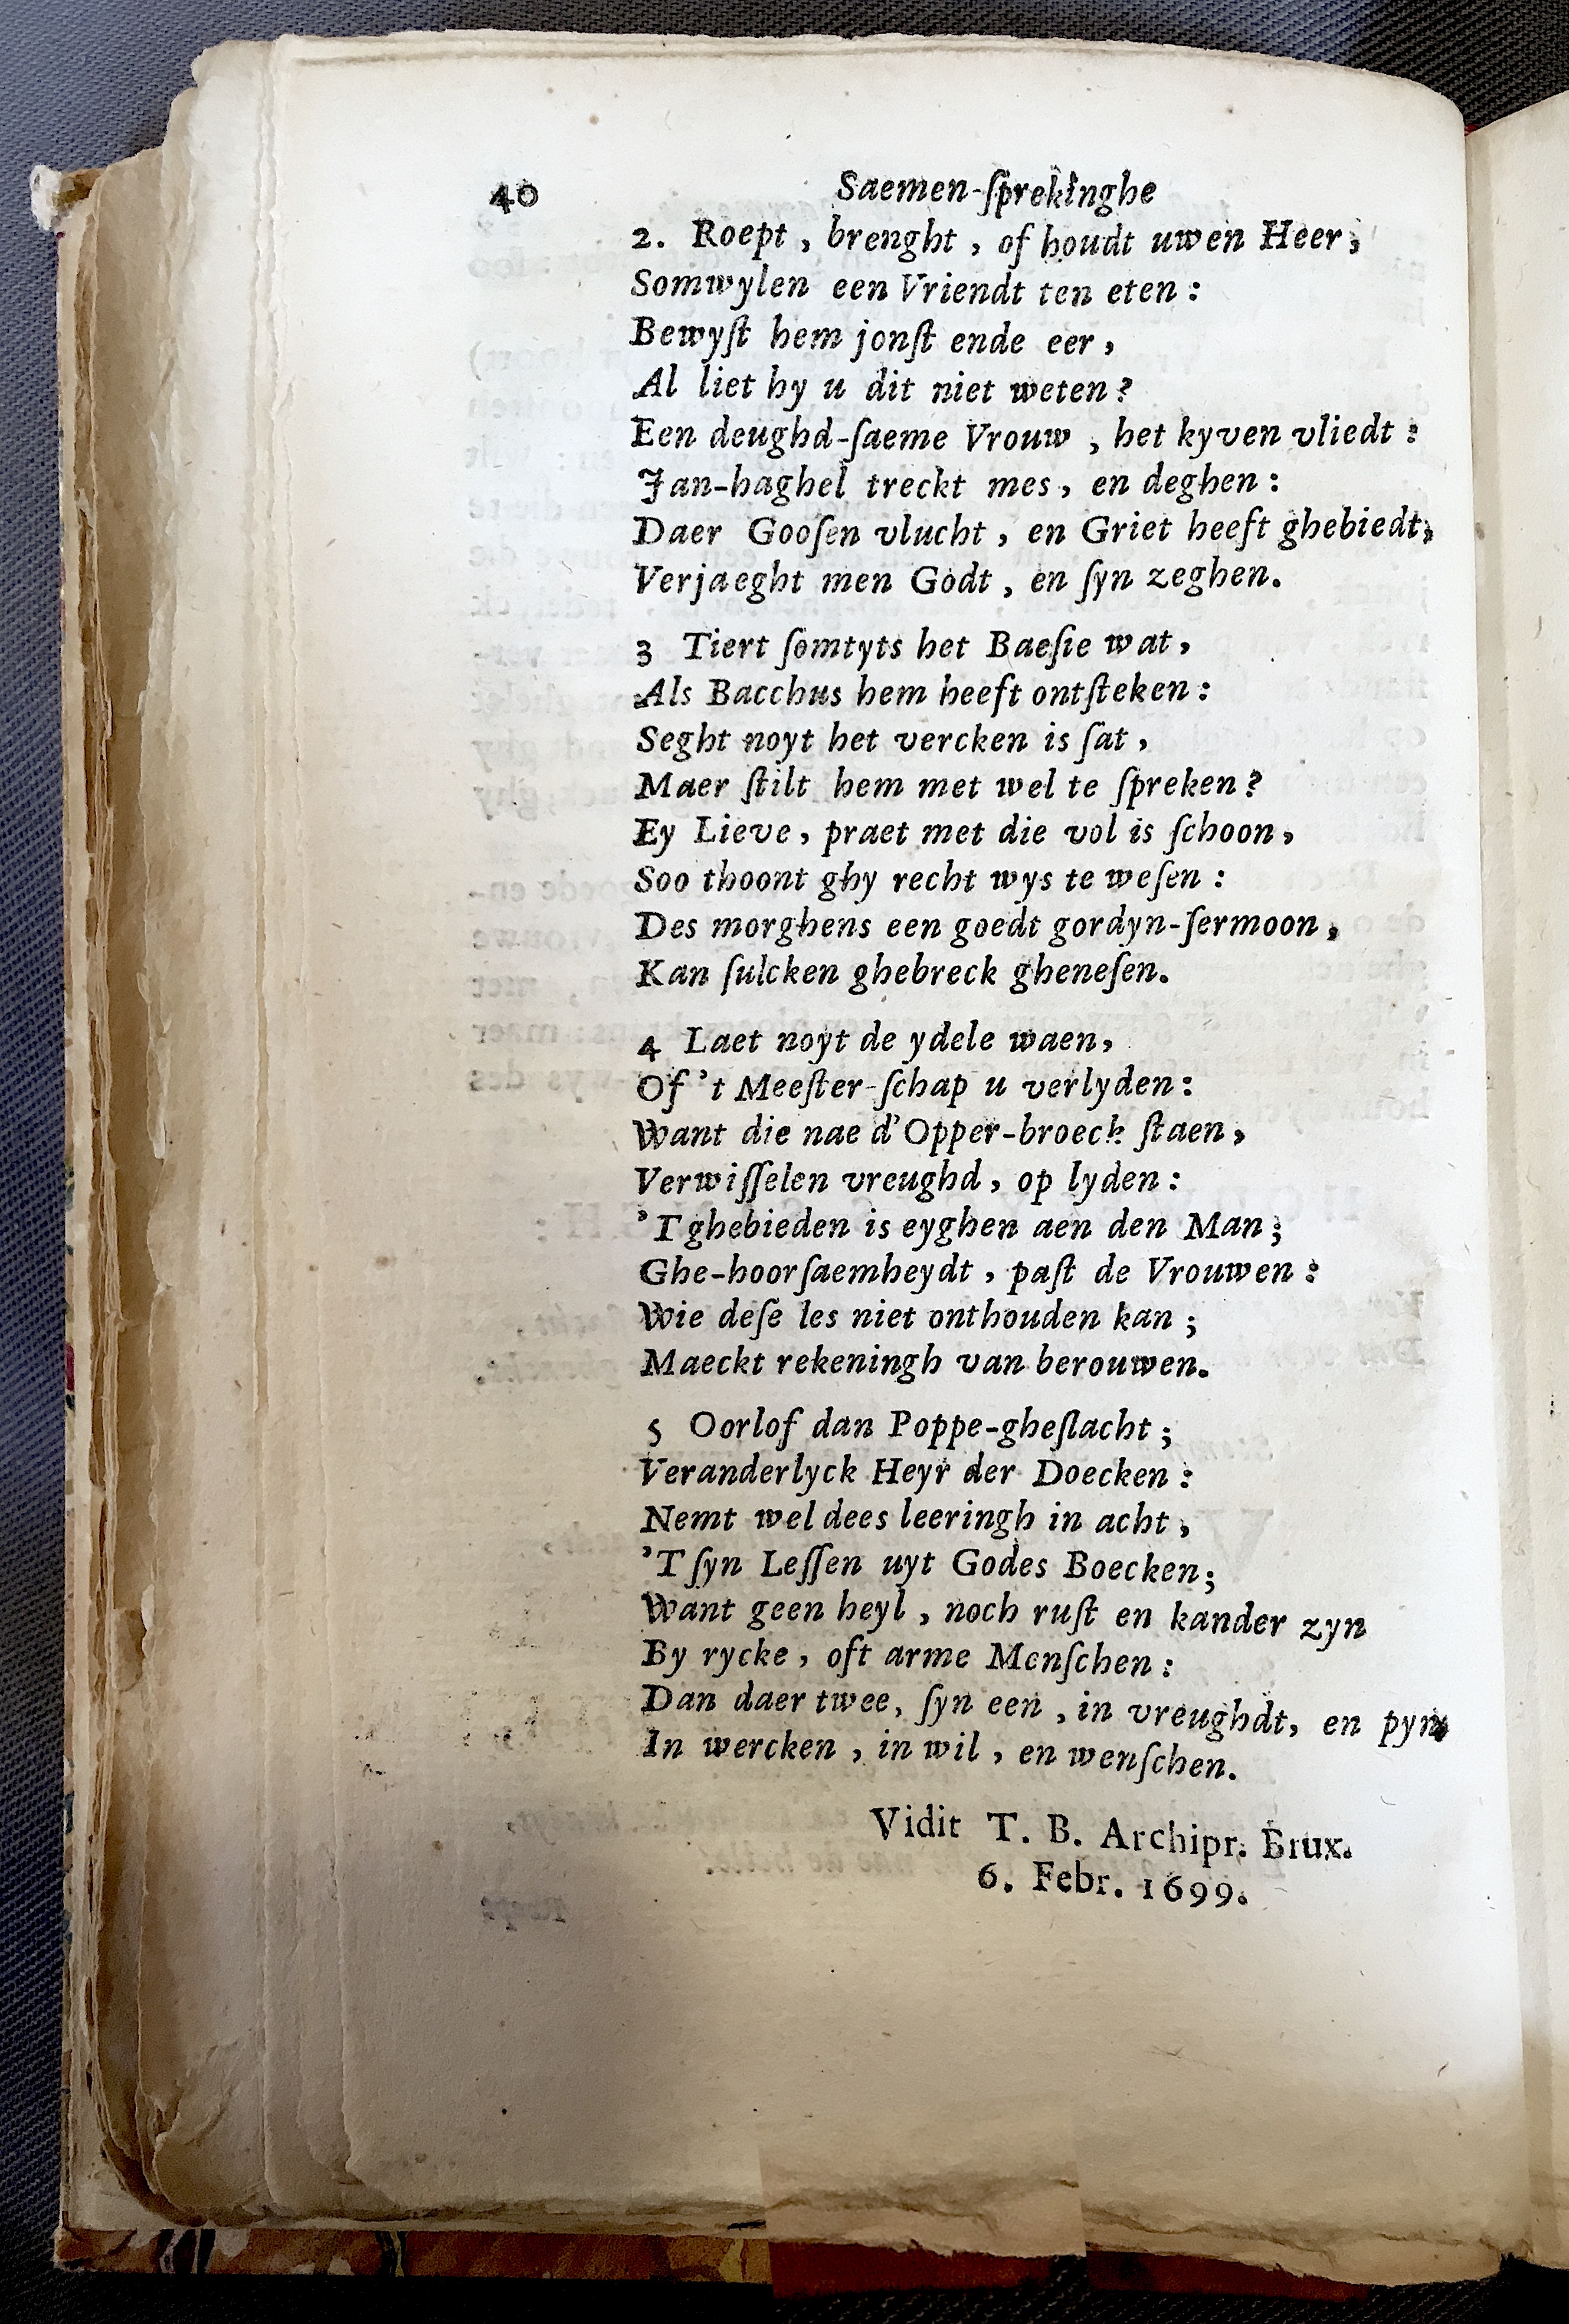 40 Saemen-ſprekinghe
2. Roept, brenght, of houdt uwen Heer,
Somwylen een Vriendt ten eten:
Bewyſt hem jonſt ende eer,
Al liet hy u dit niet weten?
Een deughd-ſaeme Vrouw, het kyven vliedt:
Jan-haghel treckt mes, en deghen:
Daer Gooſen vlucht, en Griet heeft ghebiedt,
Verjaeght men Godt, en ſyn zeghen.
3 Tiert ſomtyts het Baeſie wat,
Als Bacchus hem heeft ontſteken:
Seght noyt het vercken is ſat,
Maer ſtilt hem met wel te ſpreken?
Ey Lieve, praet met die vol is ſchoon,
Soo thoont ghy recht wys te weſen:
Des morghens een goedt gordyn-ſermoon,
Kan ſulcken ghebreck gheneſen.
4 Laet noyt de ydele waen,
Of 't Meeſter-ſchap u verlyden:
Want die nae d'Opper-broeck ſtaen,
Verwiſſelen vreughd, op lyden:
'T ghebieden is eyghen aen den Man;
Ghe-hoorſaemheydt, paſt de Vrouwen:
Wie deſe les niet onthouden kan;
Maeckt rekeningh van berouwen.
5 Oorlof dan Poppe-gheſlacht;
Veranderlyck Heyr der Doecken:
Nemt wel dees leeringh in acht,
'T ſyn Leſſen uyt Godes Boecken;
Want geen heyl, noch ruſt en kander zyn
By rycke, oft arme Menſchen:
Dan daer twee, ſyn een, in vreughdt, en pyn,
In wercken, in wil, en wenſchen.
Vidit T. B. Archipr. Brux.
6. Febr. 1699.